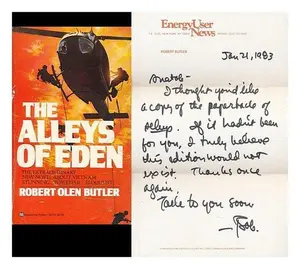 THE
ALLEYS
OF EDEN
ROBERT OLEN BUTLER
Energy User
News
ROBERT BUTLER
Jan 21, 1983
Anatole-
I thought you'd like
a copy of the paperback of
Alleys. If it hadn't been
for you, I truly believe
this edition would not
exist. Thanks once
again.
Talk to you soon
- Bob.